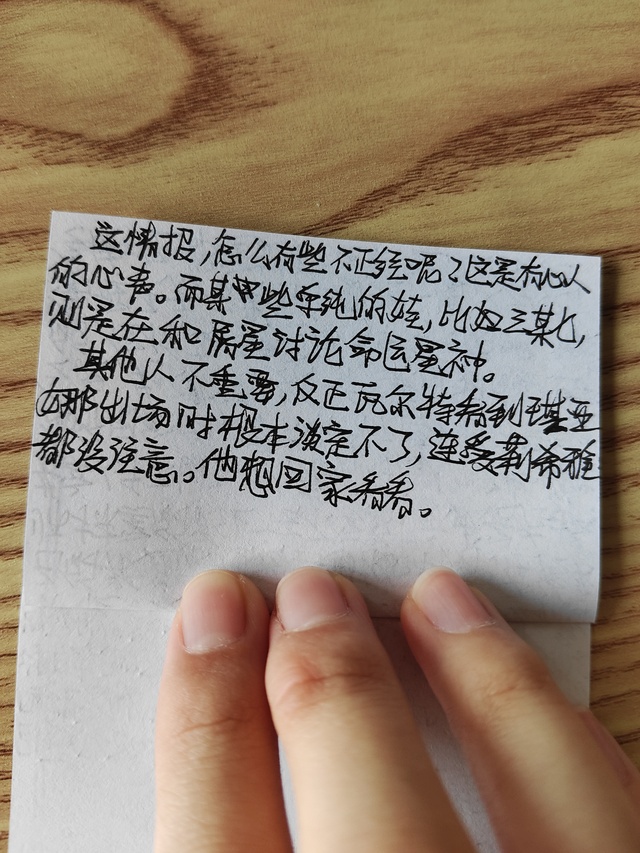 这情报,怎么有些不正经呢?这是有心人
的心事。而某些单纯的娃,比如三某七,
则是在和 星讨论命运星神。
其他人不重要,反正瓦尔特看到琪亚
娜出场时根本淡定不了,连爱莉希雅
都没注意。他想回家看看。